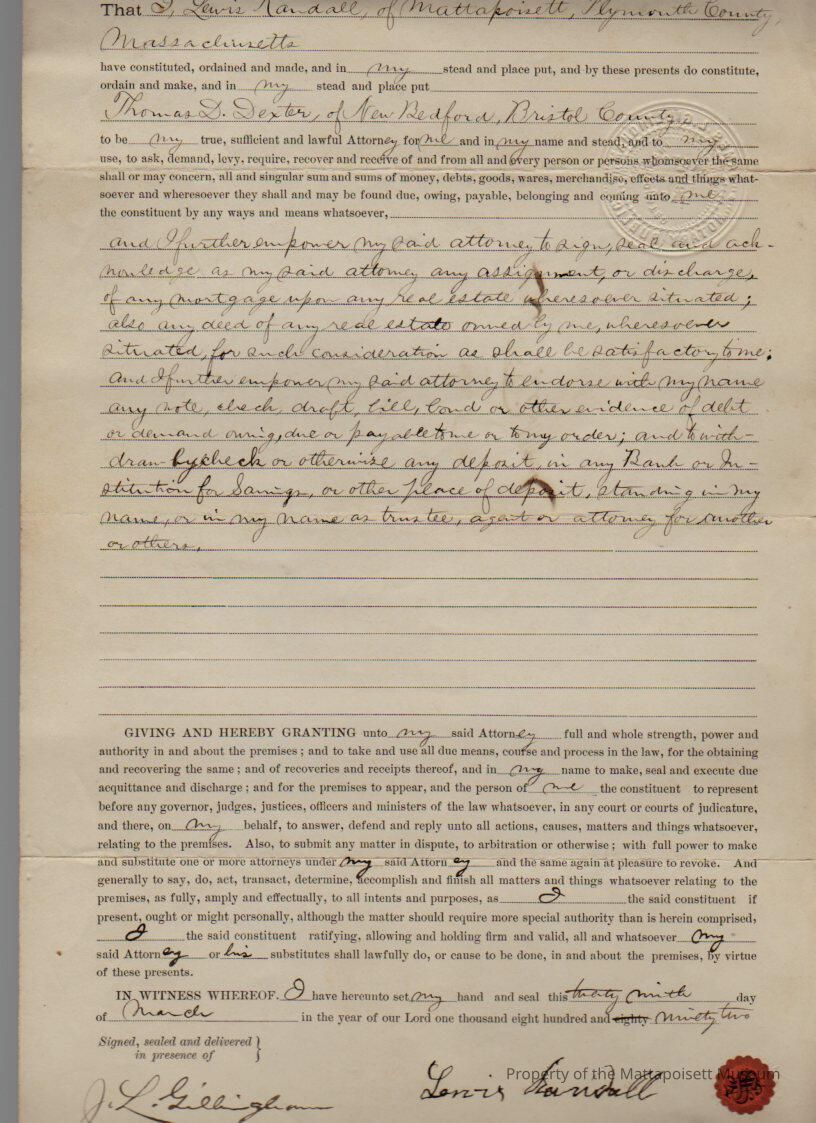 That I, Lewis Randall, of Mattapoisett, Plymouth County,
Massachusetts
have constituted, ordained and made, and in my stead and place put, and by these presents do constitute,
ordain and make, and in my stead and place put
Thomas D. Dexter, of New Bedford, Bristol County
to be my true, sufficient and lawful Attorney for me and in my name and stead, and to my
use, to ask, demand, levy, require, recover and receive of and from all and every person or persons whomsoever the same
shall or may concern, all and singular sum and sums of money, debts, goods, wares, merchandise, effects and things what-
soever and wheresoever they shall and may be found due, owing, payable, belonging and coming unto me
the constituent by any ways and means whatsoever,
and I further empower my said attorney to sign, seal and ack-
nowledge as my said attorney any assignment, or discharge,
of any mortgage upon any real estate wheresoever situated;
also any deed of any real estate owned by me, wheresoever
situated, for such consideration as shall be satisfactory to me;
and I further empower my said attorney to endorse with my name
any note, check, draft, bill, bond or other evidence of debt
or demand owing, due or payable to me or to my order; and to with-
draw by check or otherwise any deposit, in any Bank or In-
stitution for Savings, or other place of deposit, standing in my
name, or in my name as trustee, agent or attorney for another
or others.
GIVING AND HEREBY GRANTING unto my said Attorney full and whole strength, power and
authority in and about the premises; and to take and use all due means, course and process in the law, for the obtaining
and recovering the same; and of recoveries and receipts thereof, and in my name to make, seal and execute due
acquittance and discharge; and for the premises to appear, and the person of me the constituent to represent
before any governor, judges, justices, officers and ministers of the law whatsoever, in any court or courts of judicature,
and there, on my behalf, to answer, defend and reply unto all actions, causes, matters and things whatsoever,
relating to the premises. Also, to submit any matter in dispute, to arbitration or otherwise; with full power to make
and substitute one or more attorneys under my said Attorney and the same again at pleasure to revoke. And
generally to say, do, act, transact, determine, accomplish and finish all matters and things whatsoever relating to the
premises, as fully, amply and effectually, to all intents and purposes, as I the said constituent if
present, ought or might personally, although the matter should require more special authority than is herein comprised,
I the said constituent ratifying, allowing and holding firm and valid, all and whatsoever my
said Attorney or his substitutes shall lawfully do, or cause to be done, in and about the premises, by virtue
of these presents.
IN WITNESS WHEREOF. I have hereunto set my hand and seal this ninth day
of March in the year of our Lord one thousand eight hundred and eighty ninety two
Signed, sealed and delivered }
in presence of }
Property of the Mattapoisett Museum
J. L. Gillingham Lewis Randall